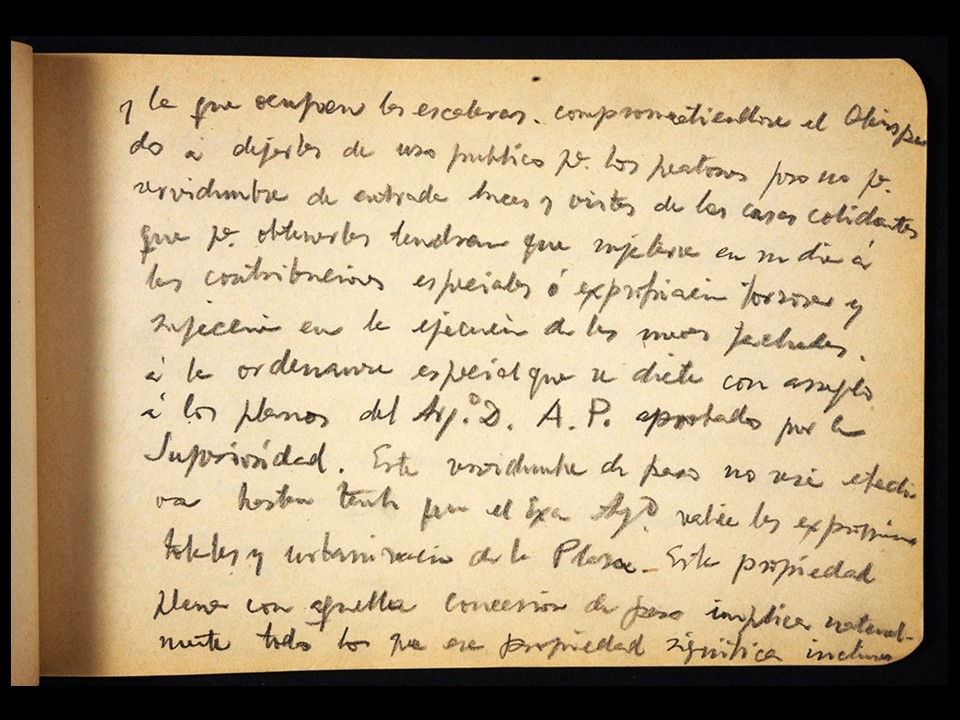 y la que ocupen las escaleras. comprometiendose el Obispa
do a dejarlas de uso publico pª. los peatones pero no pª.
servidumbre de entrada luces y vistas de las casas colidantes
que pª. obtenerlas tendran que sujetarse en su dia á
las contribuciones especiales ó expropiacion forzosa y
sujeccion en la ejecucion de las nuevas fachadas.
á la ordenanza especial que se dicte con arreglo
á los planos del Arqº. D. A. P. aprobados por la
Superioridad. Esta servidumbre de paso no será efecti
va hasta tanto que el Exc Ayº. realice las expropiacion
totales y urbanizacion de la Plaza. Esta propiedad
plena con aquella concesion de paso implica natural-
mente todo lo que esa propiedad significa incluso